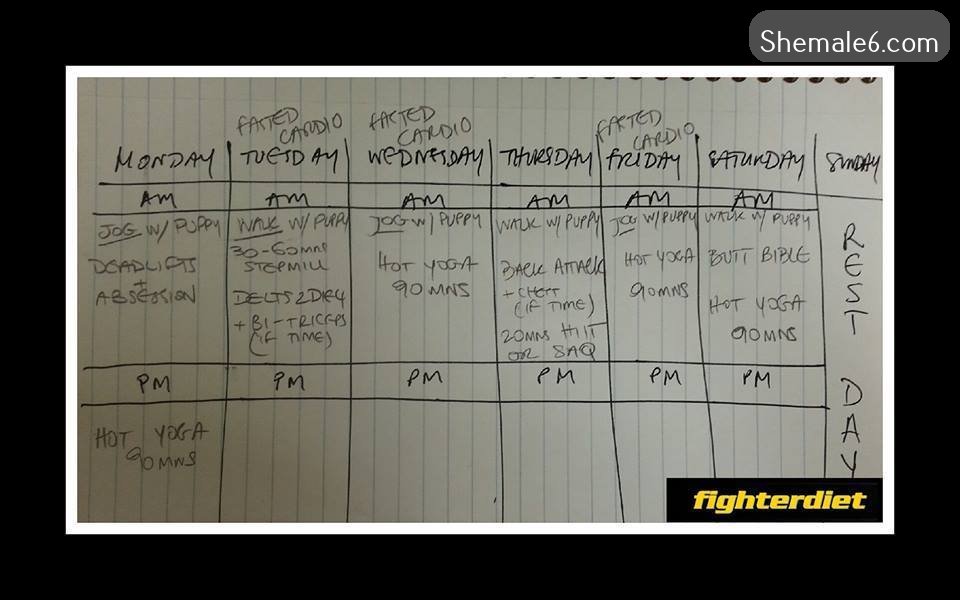 Shemale6.com
FASTED CARDIO
FASTED CARDIO
FASTED CARDIO
MONDAY TUESDAY WEDNESDAY THURSDAY FRIDAY SATURDAY SUNDAY
AM AM AM AM AM AM
JOG W/ PUPPY
DEADLIFTS
+
ABSESSION
WALK W/ PUPPY
30-60MNS
STEPMILL
DELTS 2 DIE 4
+ BI-TRICEPS
(IF TIME)
JOG W/ PUPPY
HOT YOGA
90MNS
WALK W/ PUPPY
BACK ATTACK
+ CHEST
(IF TIME)
20MNS HIIT
OR SAQ
JOG W/ PUPPY
HOT YOGA
90MNS
WALK W/ PUPPY
BUTT BIBLE
HOT YOGA
90MNS
REST DAY
PM PM PM PM PM PM
HOT YOGA
90MNS
fighterdiet